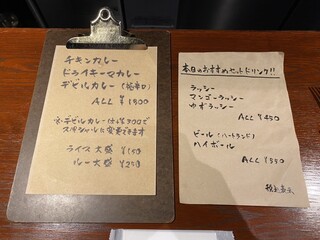 チキンカレー
ドライキーマカレー
デビルカレー(激辛口)
ALL ¥1500
デビルカレーは+¥300で
スペシャルに変更できます
ライス大盛 ¥150
ルー大盛 ¥250
本日のおすすめセットドリンク!!
ラッシー
マンゴーラッシー
ゆずラッシー
ALL ¥450
ビール(ハートランド)
ハイボール
ALL ¥550